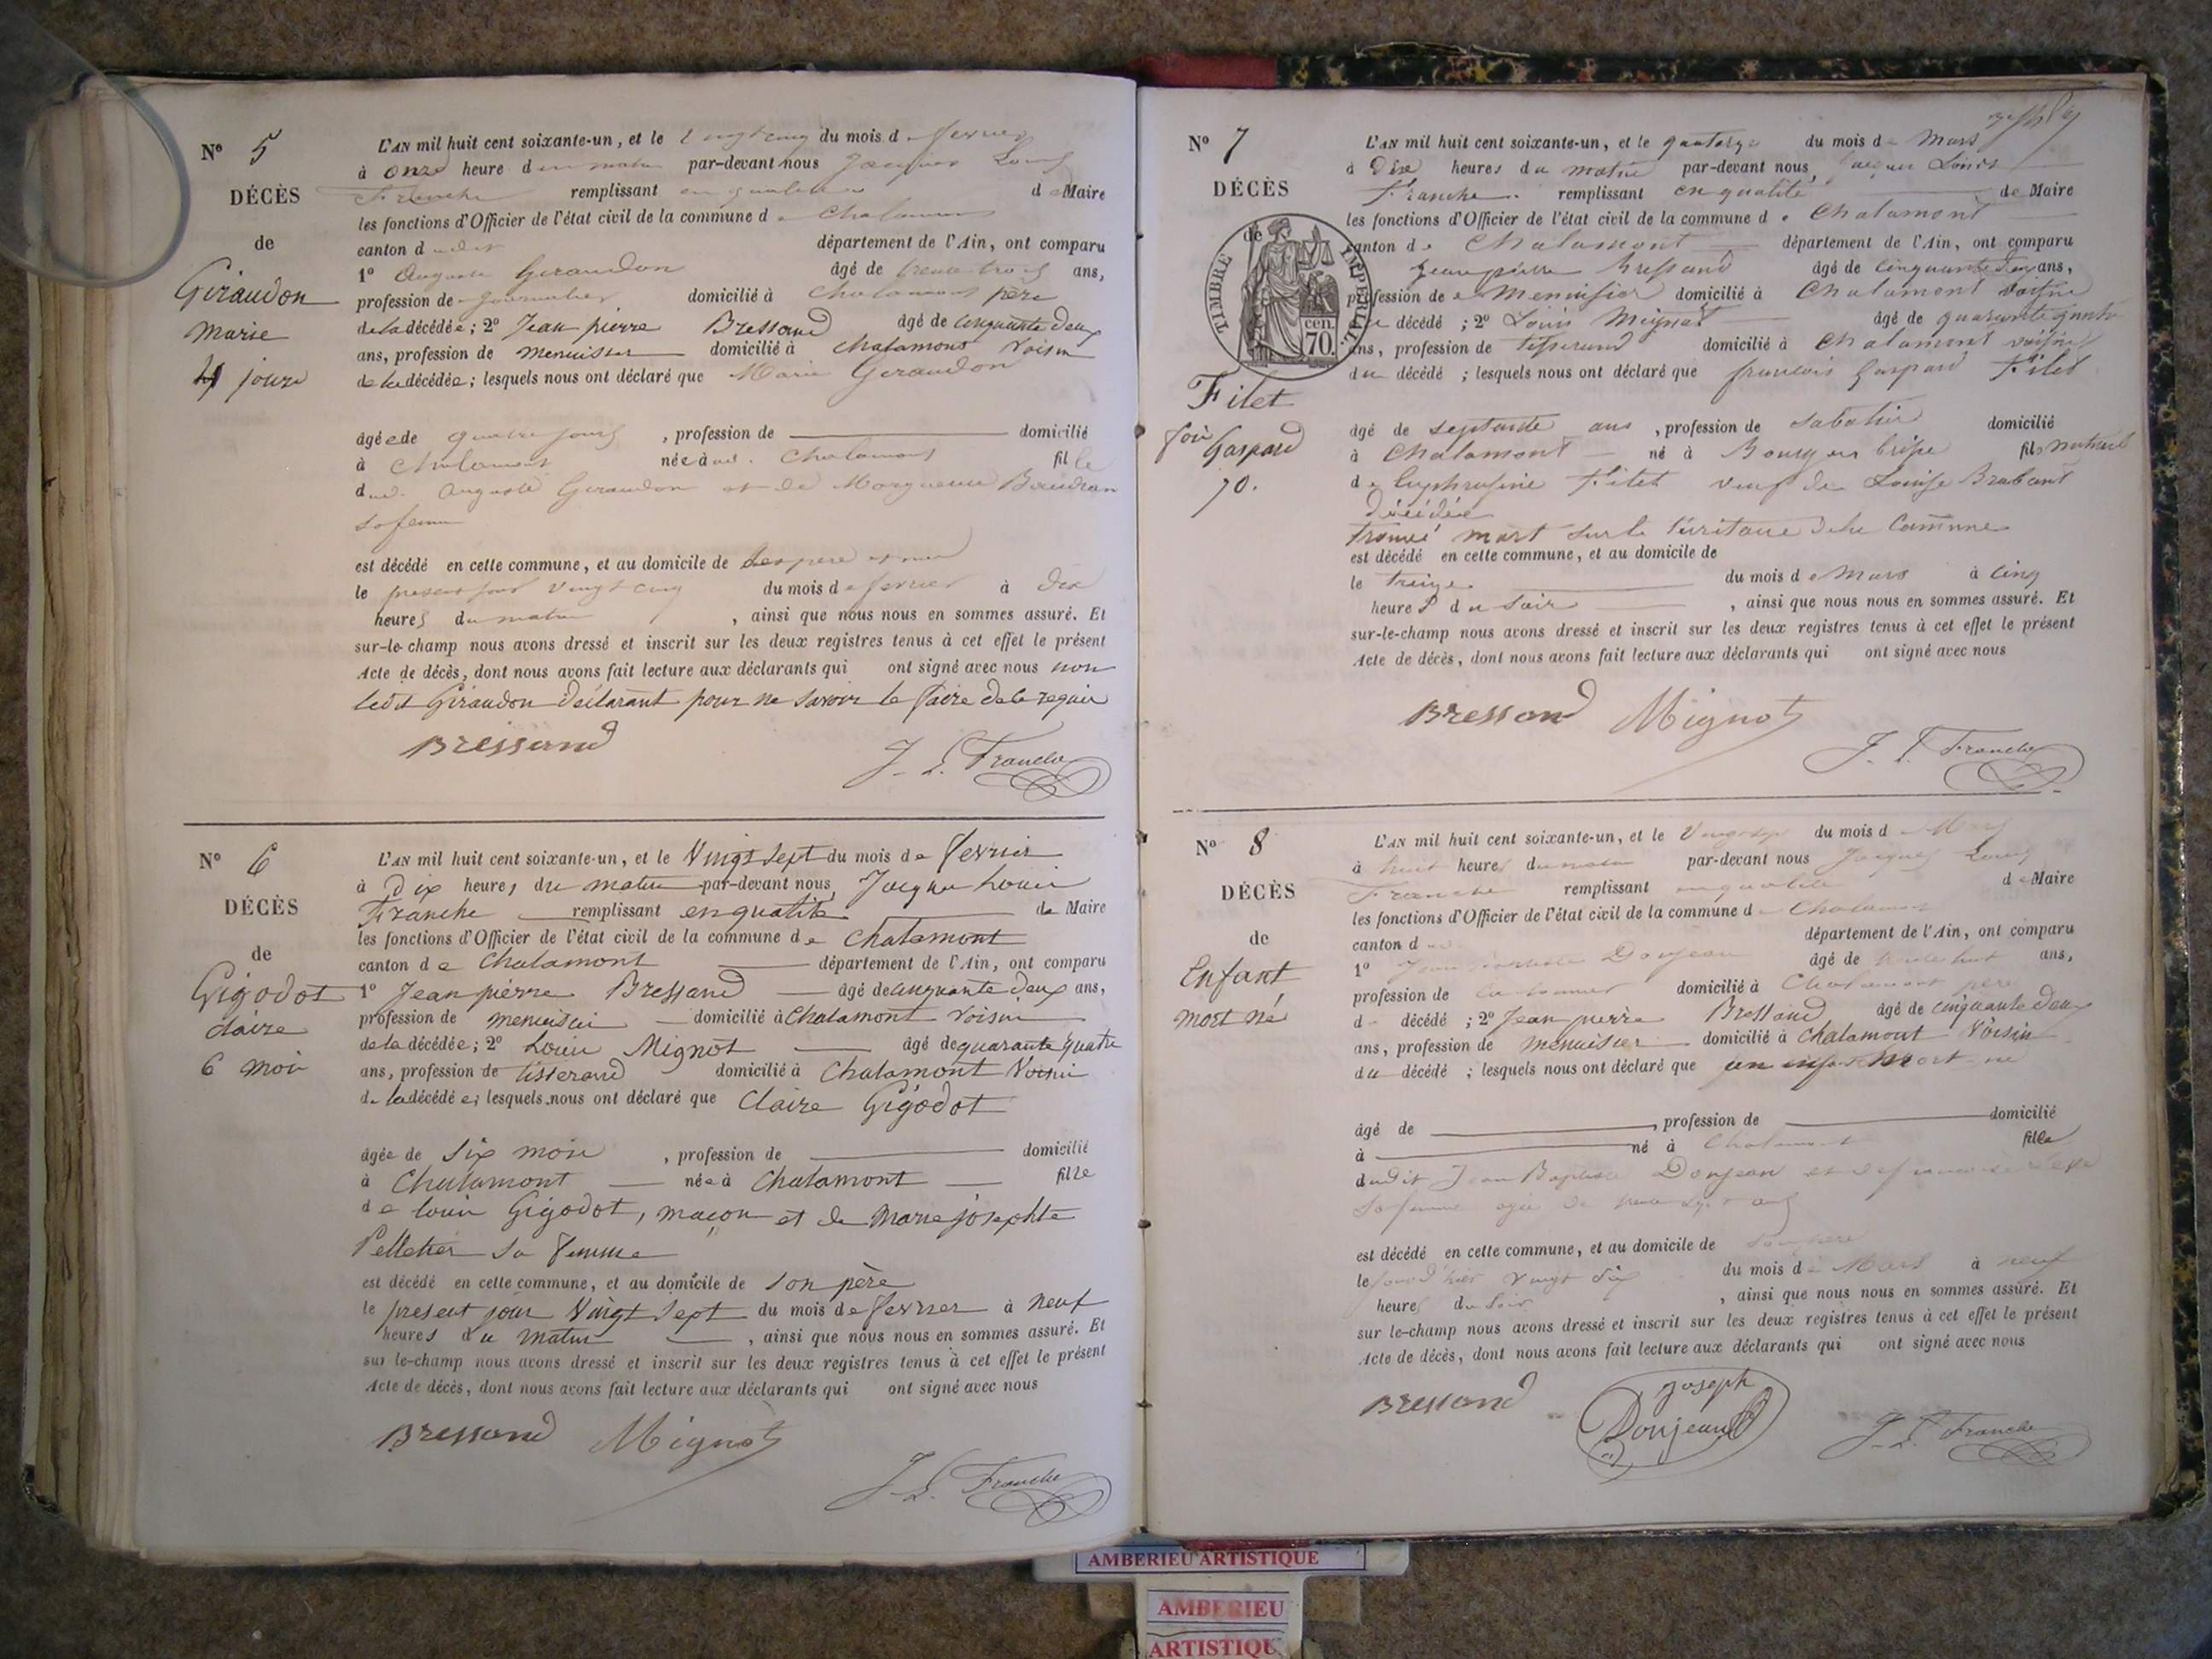 N° 5
L'AN mil huit cent soixante-un, et le vingt cinq du mois de fevrier
à onze heure du matin par-devant nous Jacques Louis
Franche remplissant en qualité de Maire
les fonctions d'Officier de l'état civil de la commune de Chalamont
canton dudit département de l'Ain, ont comparu
1° Auguste Giraudon âgé de trente trois ans,
profession de journalier domicilié à Chalamont père
de la décédée; 2° Jean pierre Bressand âgé de cinquante deux
ans, profession de menuisier domicilié à chalamont voisin
de la décédée; lesquels nous ont déclaré que Marie Geraudon
DÉCÈS
de
Giraudon
marie
4 jours
âgée de quatre jours, profession de domicilié
à Chalamont née à Chalamont fille
dud. Auguste Geraudon et de Marguerite Baudran
sa femme
est décédé en cette commune, et au domicile de ses père et mere
le present jour vingt cinq du mois de fevrier à dix
heures du matin, ainsi que nous nous en sommes assuré. Et
sur-le-champ nous avons dressé et inscrit sur les deux registres tenus à cet effet le présent
Acte de décès, dont nous avons fait lecture aux déclarants qui ont signé avec nous non
ledit Giraudon déclarant pour ne savoir le faire de ce requis
Bressand J. L. Franche
N° 6
L'AN mil huit cent soixante-un, et le Vingt sept du mois de fevrier
à dix heures du matin par-devant nous, Jacques Louis
Franche remplissant en qualité de Maire
les fonctions d'Officier de l'état civil de la commune de Chalamont
canton de Chalamont département de l'Ain, ont comparu
1° Jean pierre Bressand âgé de cinquante deux ans,
profession de menuisier domicilié à Chalamont voisin
de la décédée; 2° Louis Mignot âgé de quarante quatre
ans, profession de tisserand domicilié à Chalamont Voisin
de la décédée; lesquels nous ont déclaré que Claire Gigodot
DÉCÈS
de
Gigodot
claire
6 mois
âgée de six mois, profession de domicilié
à Chalamont née à Chalamont fille
de louis Gigodot, maçon et de Marie josephte
Pelletier sa femme
est décédé en cette commune, et au domicile de son père
le present jour Vingt sept du mois de fevrier à neuf
heures du matin, ainsi que nous nous en sommes assuré. Et
sur le-champ nous avons dressé et inscrit sur les deux registres tenus à cet effet le présent
Acte de décès, dont nous avons fait lecture aux déclarants qui ont signé avec nous
Bressand Mignot
J. L. Franche
N° 7
L'AN mil huit cent soixante-un, et le quatorze du mois de Mars
à Dix heures du matin par-devant nous, Jacques Louis
Franche remplissant en qualité de Maire
les fonctions d'Officier de l'état civil de la commune de Chalamont
canton de Chalamont département de l'Ain, ont comparu
Jean pierre Bressand âgé de cinquante deux ans,
profession de Menuisier domicilié à Chalamont voisin
du décédé; 2° Louis Mignot âgé de quarante quatre
ans, profession de tisserand domicilié à Chalamont voisin
du décédé; lesquels nous ont déclaré que francois Gaspard Filet
DÉCÈS
de
TIMBRE IMPERIAL
70 cen.
Filet
Gaspard
70.
âgé de septante ans, profession de sabotier domicilié
à Chalamont né à Bourg en bresse fils naturel
de Euphrosine Filet veuf de Louise Brabant
décédée
trouvé mort sur le territoire de la Commune
est décédé en cette commune, et au domicile de
le treize du mois de Mars à cinq
heures du soir, ainsi que nous nous en sommes assuré. Et
sur-le-champ nous avons dressé et inscrit sur les deux registres tenus à cet effet le présent
Acte de décès, dont nous avons fait lecture aux déclarants qui ont signé avec nous
Bressand Mignot
J. L. Franche
N° 8
L'AN mil huit cent soixante-un, et le Vingt sept du mois de Mars
à huit heures du matin par-devant nous Jacques Louis
Franche remplissant en qualité de Maire
les fonctions d'Officier de l'état civil de la commune de Chalamont
canton dud. département de l'Ain, ont comparu
1° Jean Baptiste Donjean âgé de ans,
profession de domicilié à Chalamont père
d décédé; 2° Jean pierre Bressand âgé de cinquante deux
ans, profession de menuisier domicilié à Chalamont Voisin
du décédé; lesquels nous ont déclaré que un enfant mort né
DÉCÈS
de
Enfant
mort né
âgé de, profession de domicilié
à né à Chalamont fille
dudit Jean Baptiste Donjean et de
sa femme agée de ans
est décédé en cette commune, et au domicile de son père
le jour d'hier vingt six du mois de Mars à neuf
heures du soir, ainsi que nous nous en sommes assuré. Et
sur le-champ nous avons dressé et inscrit sur les deux registres tenus à cet effet le présent
Acte de décès, dont nous avons fait lecture aux déclarants qui ont signé avec nous
Bressand Joseph Donjean J. L. Franche
AMBERIEU ARTISTIQUE
AMBERIEU
ARTISTIQU